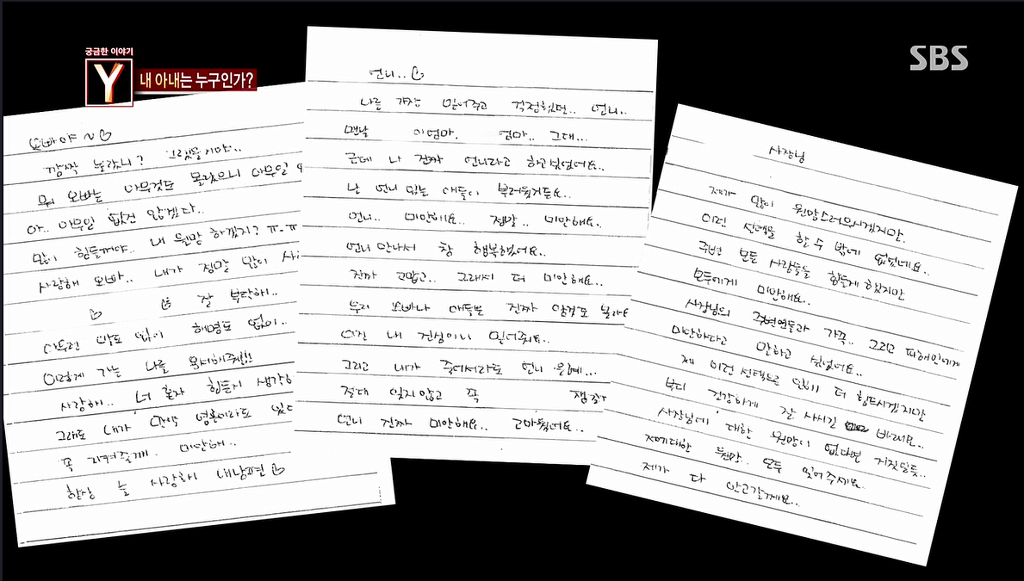 궁금한 이야기
Y
내 아내는 누구인가?
SBS
오빠야 ~ ♡
깜짝 놀랐니? 그랬을거야..
뭐 오빠는 아무것도 몰랐으니 아무일
아.. 아무일 없진 않겠다..
많이 힘들꺼야.. 내 원망 하겠지? ㅠ-ㅠ
사랑해 오빠.. 내가 정말 많이
♡ 잘 부탁해..
아무런 말도 없이 해명도 없이..
이렇게 가는 나를 용서해줘!!
사랑해.. 너 혼자 힘든지
그래도 내가 만약 영혼이라도
꼭 지켜줄께. 미안해..
항상 늘 사랑해 내남편 ♡
언니.. ♡
나를 가장 믿어주고 걱정했던.. 언니..
맨날 이엄마. 엄마.. 그대...
근데 나 진짜 언니라고 하고싶었어요..
난 언니 있는 애들이 부러웠거든요..
언니.. 미안해요.. 정말.. 미안해요.
언니 만나서 참 행복했었어요..
진짜 고맙고.. 그래서 더 미안해요.
우리 오빠나 애들도 진짜
이건 내 진심이니 믿어줘요..
그리고 내가 죽어서라도 언니 은혜...
절대 잊지않고 꼭
언니 진짜 미안해요.. 고마웠어요..
사장님
제가 많이 원망스러우시겠지만.
이런 선택을 할 수 밖에 없었네요..
주변 모든 사람들을 힘들게 하겠지만
모두에게 미안해요..
사장님의 주변분들과 가족.. 그리고 피해인에게
미안하다고 말하고 싶었어요..
제 이런 선택으로 인해 더 힘드시겠지만
부디 건강하게 잘 사시길 바래요..
사장님에 대한 원망이 없다면 거짓말듯..
저에대한 원망.. 모두 잊어주세요..
제가 다 안고갈게요..